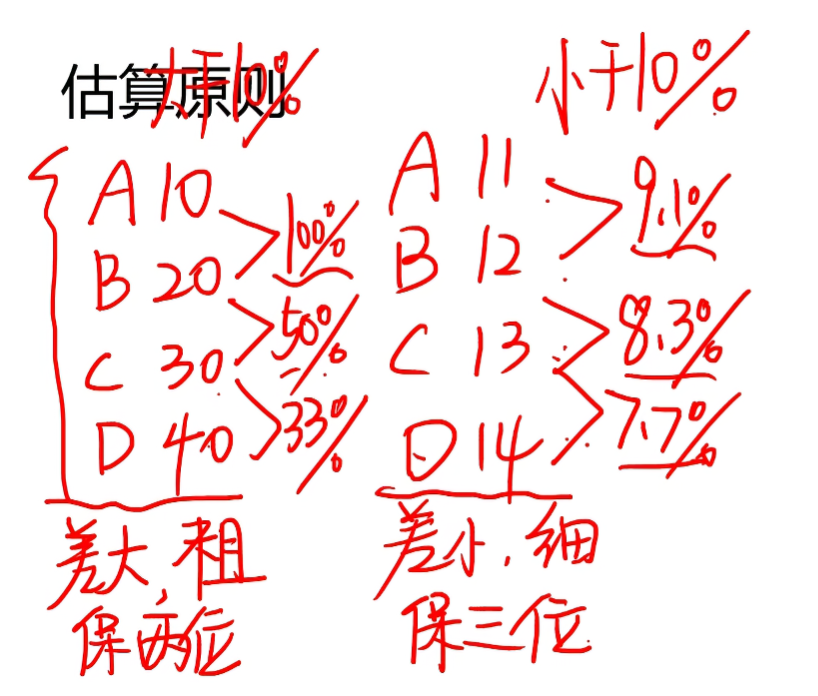 估算原则
大于10%
小于10%
A 10
B 20
C 30
D 40
100%
50%
33%
差大，粗
保两位
A 11
B 12
C 13
D 14
9.1%
8.3%
7.7%
差小，细
保三位